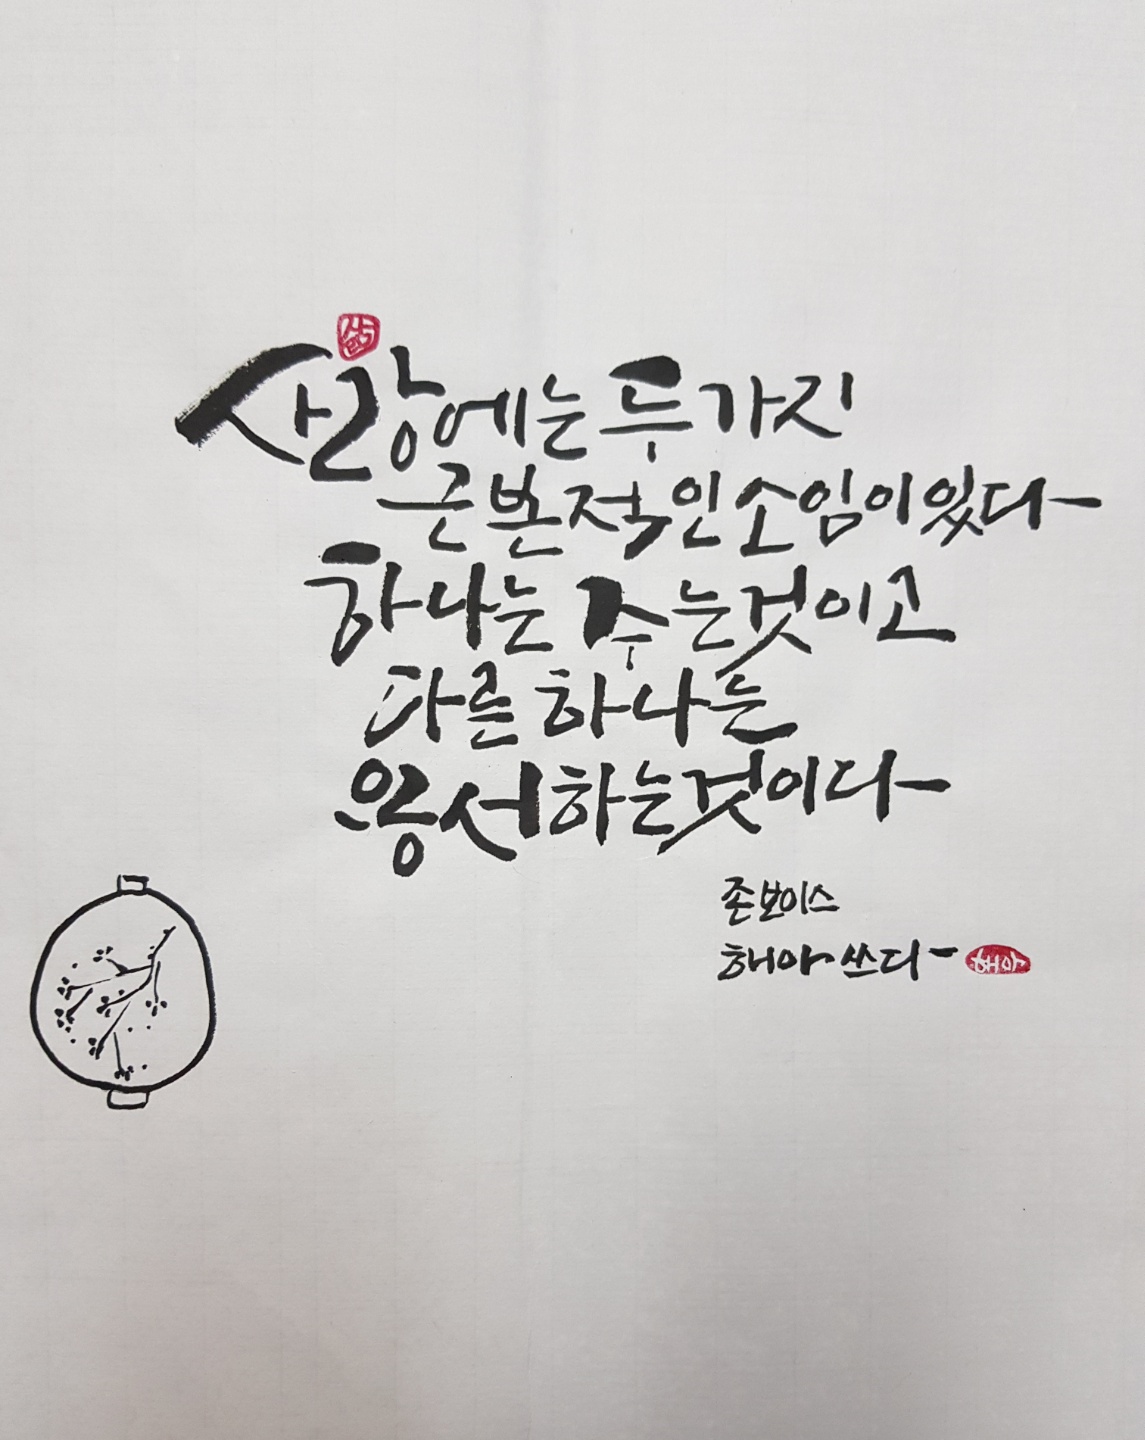 사랑에는 두가지
근본적인 소임이 있다
하나는 주는것이고
다른 하나는
용서하는것이다
존 보이스
해아 쓰다
해아